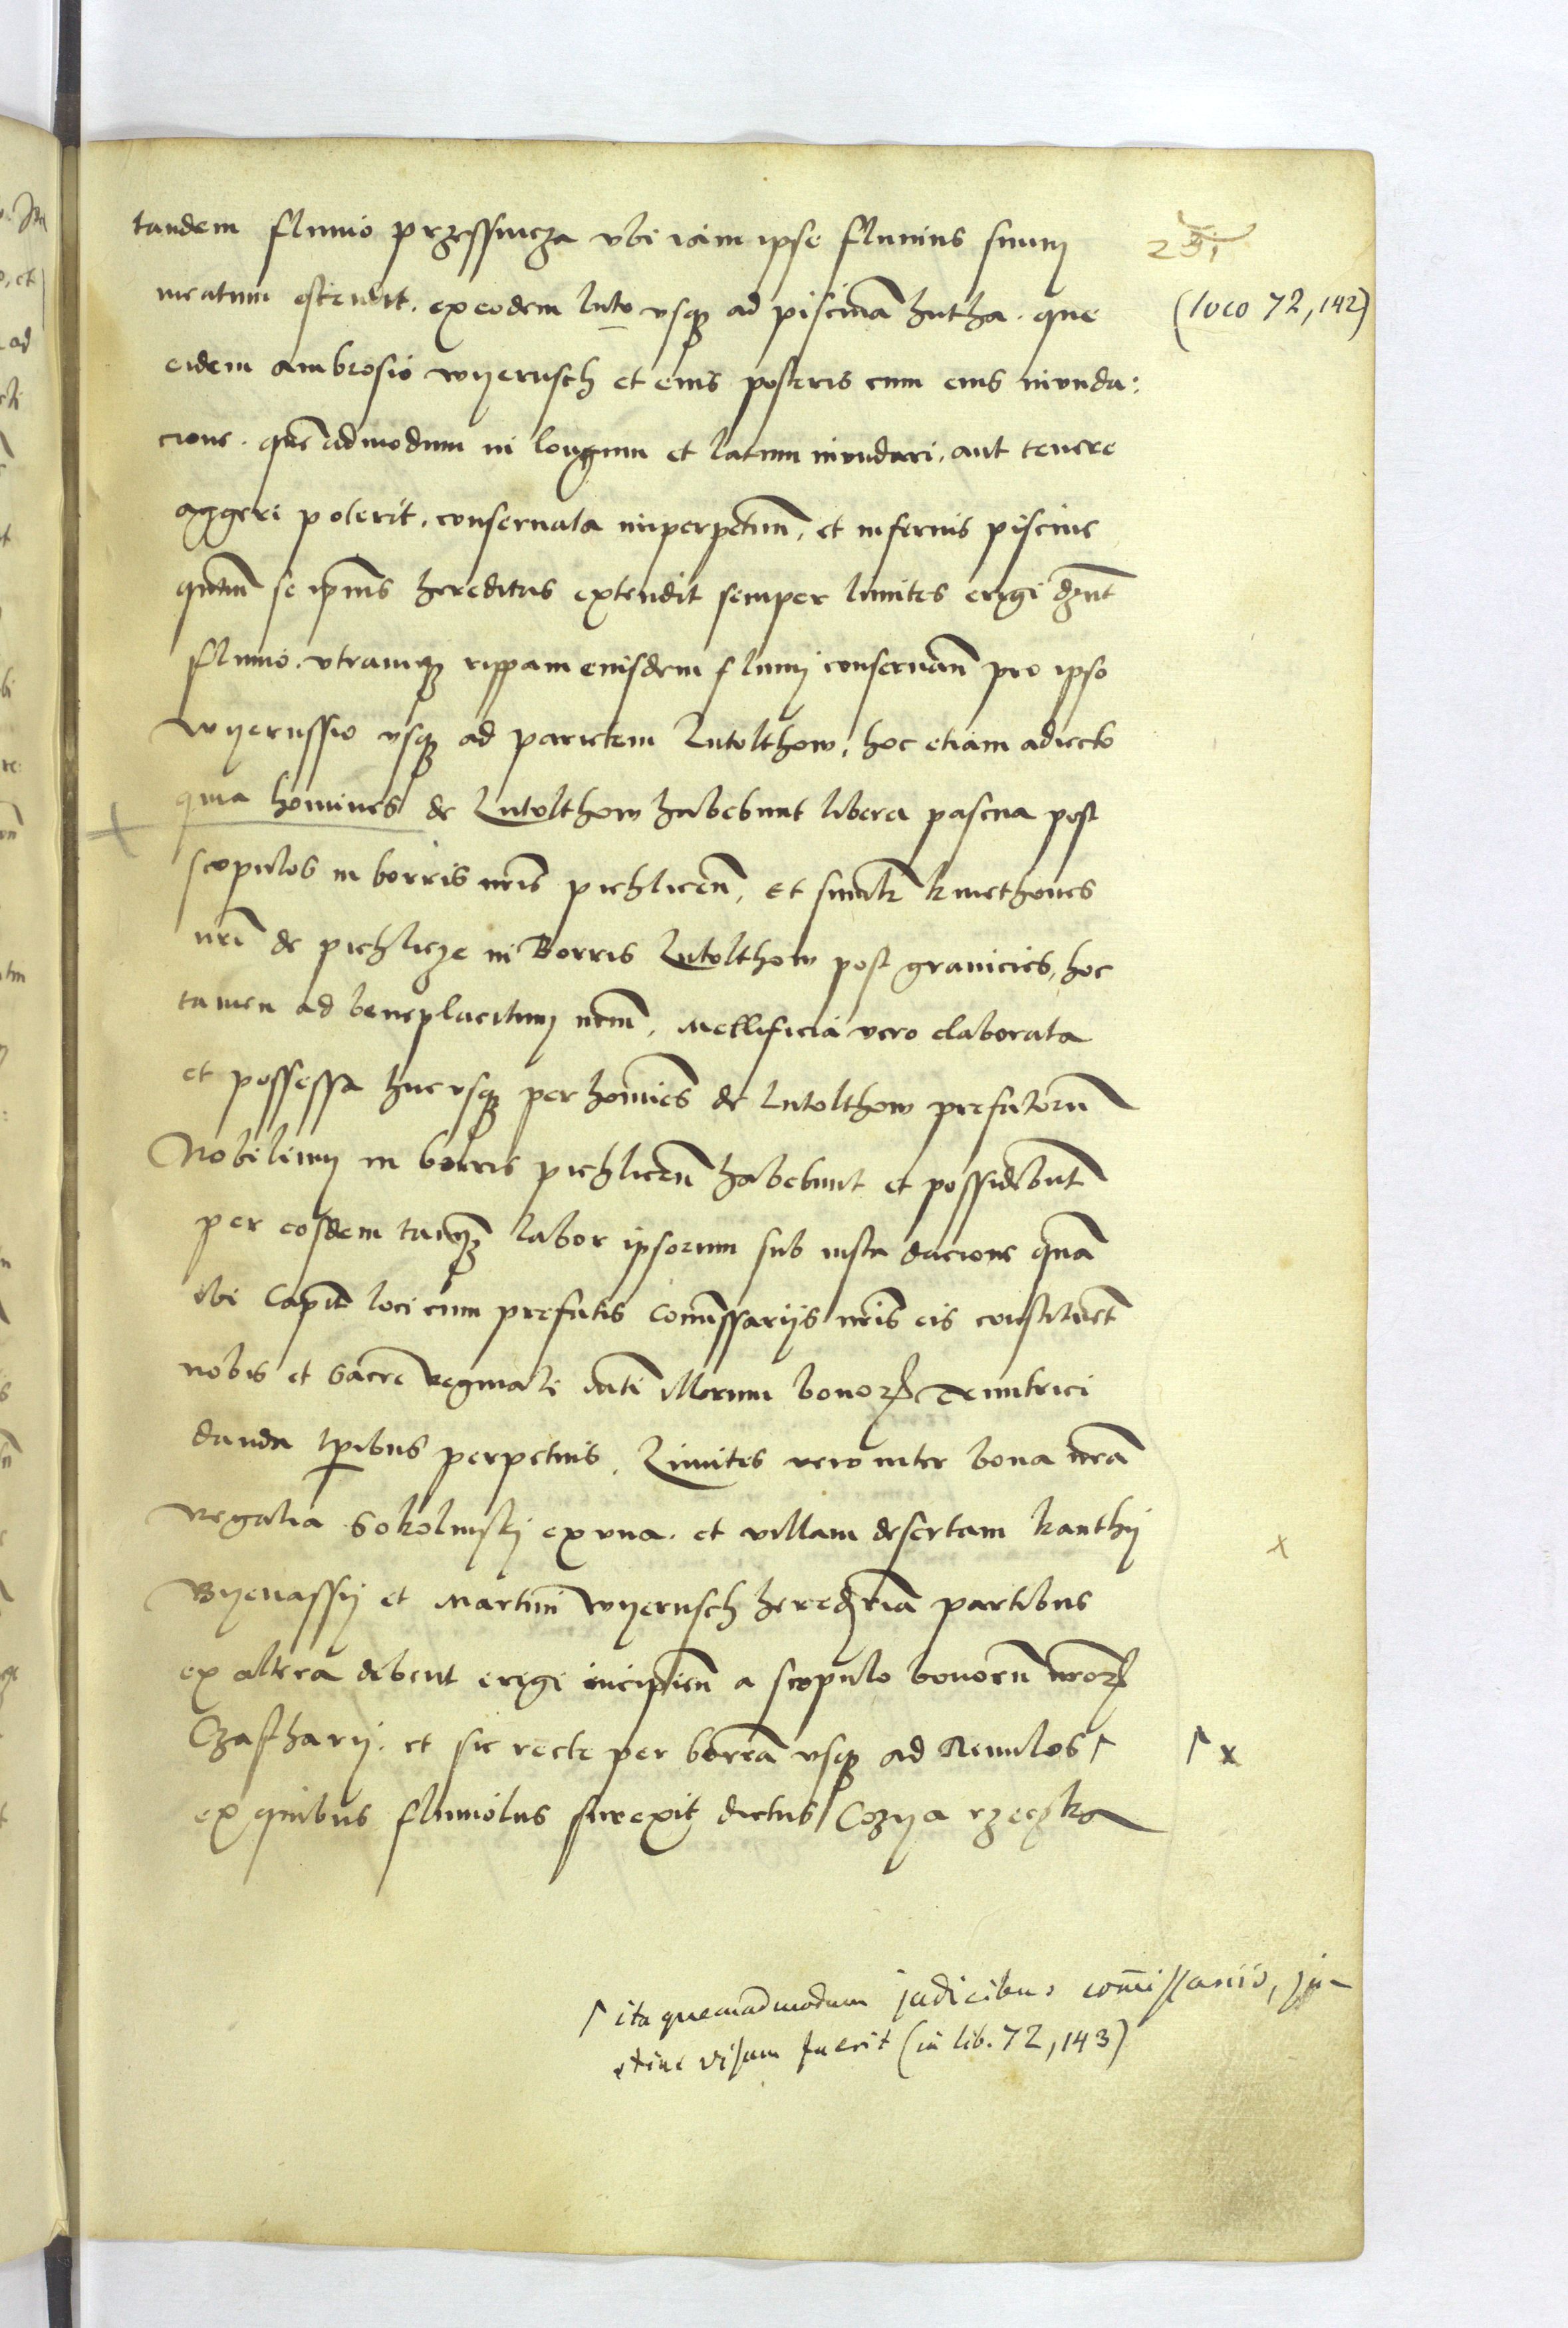 tandem fluuio przessnicza vbi iam ipse fluuius suum
(loco 72, 142)
meatum ostendit. ex eodem luto vsq̃ ad piscinã hutha. que
eidem ambrosio wyerusch et eius posteris cum eius inunda:
cione. quẽadmodum in longum et latum inundari, aut tenere
aggeri poterit, conseruata imperpetuũ, et infernis piscine
quãtũ se ip̃ius hereditas extendit semper limites erigi
fluuio. vtramq̃ rippam eiusdem fluuij conseruãn̄ pro ipso
wyerussio vsq̃ ad parietem lutolthow, hoc etiam adiecto
quia homines de Lutolthow habebunt libera pascua post
scopulos in borris nr̃is pichlicen̄, et similr̃ kmethones
nr̃i de pichlicze in Borris Lutolthow post granicies, hoc
tamen ad beneplacitum nrm̃, Mellificia vero elaborata
et possessa hucusq̃ per homĩes de Lutolthow prefatorũ
Nobilium in borris pichlicen̄ habebunt et possidebũt
per eosdem tanq̃ labor ipsorum sub iusta dacione quã
ibi Capit̃ loci cum prefatis Com̃issarijs nr̃is eis constituẽt
nobis et Sacre Reginali illorum bonoꝝ
danda tp̃ibus perpetuis, Limites vero inter bona nrã
Regalia Sokolniky ex vna. et villam desertam kanthy
Byenassij et Martini wyerusch partibus
ex altera debent erigi incipien̄ a scopulo bonorũ nroꝝ
Czastharij. et sic recte per borrã vsq̃ ad Riuulos ↾
↾ x
ex quibus fluuiolus surexit dictus Cozya rzeczka
↾ ita quemadmodum judicibus com̃issariis,
visum fuerit (in lib. 72, 143)